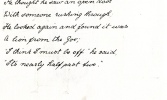 He thought he saw an open door
With someone rushing through
He looked again and found it was
A lion from the Zoo;
"I think I must be off" he said,
"It's nearly half past two."